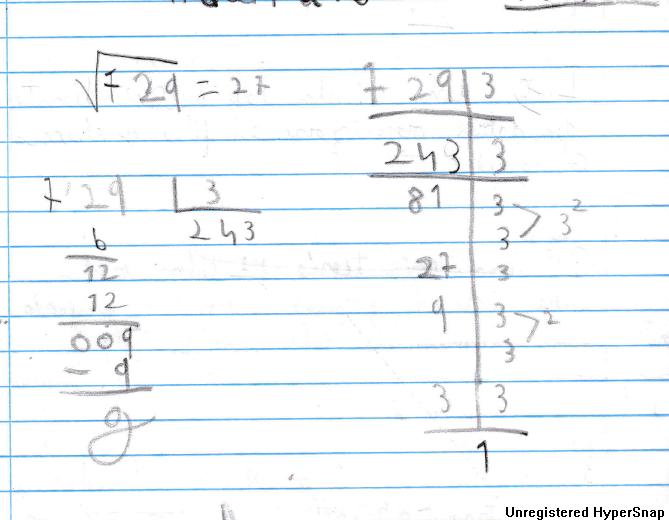 √729 = 27
729 | 3
243 | 3
81 | 3
3 > 3²
27 | 3
9 | 3 > 2
3
3 | 3
1
7'29 | 3
6 243
12
12
009
- 9
0
Unregistered HyperSnap